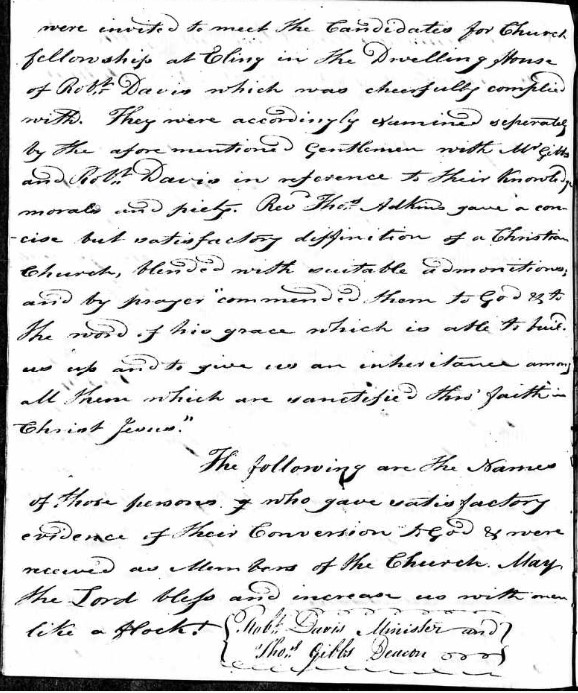 were invited to meet the Candidates for Church
fellowship at Eling in the Dwelling House
of Robt. Davis which was chearfully complied
with. They were accordingly examined seperately
by the afore mentioned Gentlemen with Mr Gibbs
and Robt. Davis in reference to their Knowledge
morals and piety. Rev Thos. Adkins gave a con-
-cise but satisfactory diffinition of a Christian
Church, blended with suitable admonitions,
and by prayer "commended them to God & to
the word of his grace which is able to build
us up and to give us an inheritance among
all them which are sanctified thro' faith in
Christ Jesus."
The following are the Names
of those persons who gave satisfactory
evidence of their Conversion to God & were
received as Members of the Church. May
the Lord bless and increase us with men
like a flock!
Robt. Davis Minister and
Thos. Gibbs Deacon